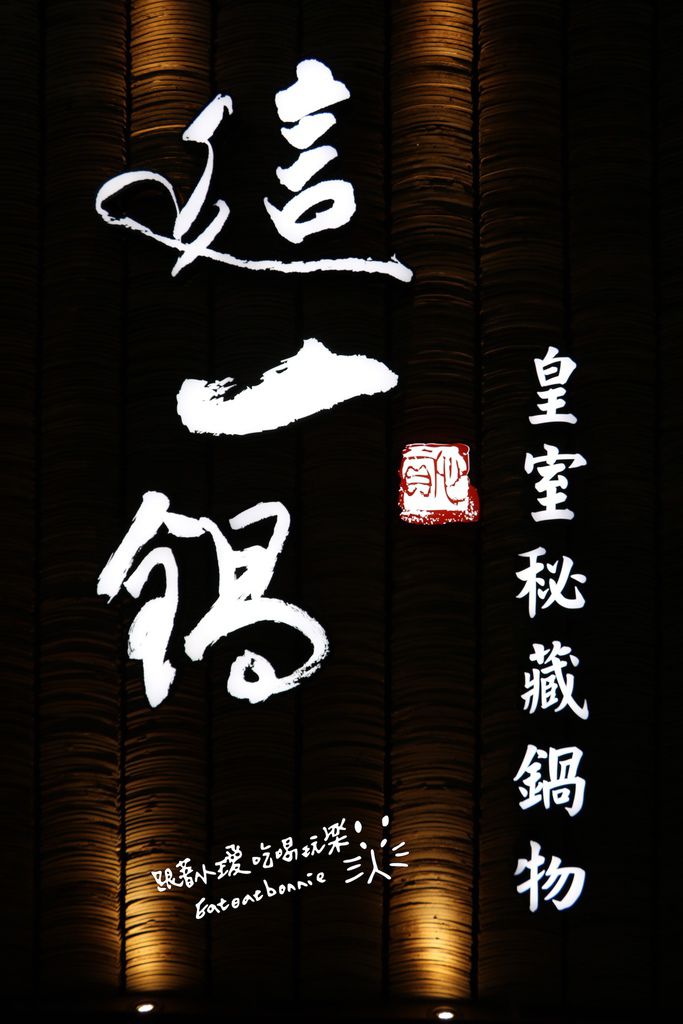 這一鍋
皇室秘藏鍋物
跟著小璦吃喝玩樂
Eatoatbonnie